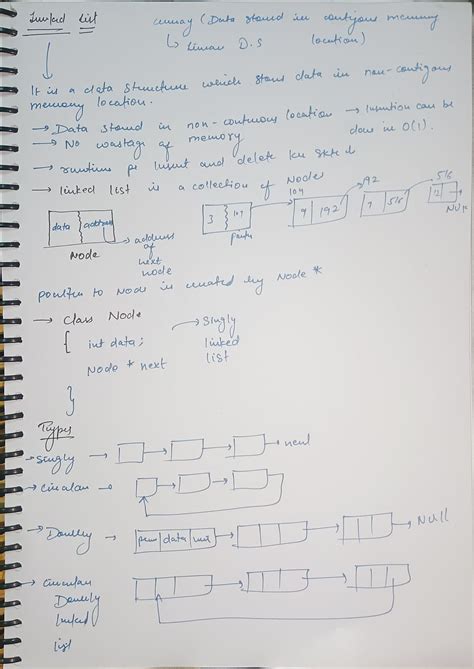 Linked List
array (Data stored in contigous memory
location)
↳ Linear D.S
It is a data structure which stores data in non-contigous
memory location.
→ Data stored in non-continuous location → Insertion can be
done in O(1).
→ No wastage of memory
→ runtime pe Insert and delete kr skte
→ linked list is a collection of Nodes
data address
Node
→ address
of
next
node
3 104
104
9 192
192
9 516
516
12
NULL
pointer to Node is created by Node *
→ Class Node
{ int data;
Node * next
}
→ Singly
linked
list
Types
→ Singly → null
→ Circular →
→ Doubley → prev data next → NULL
→ Circular
Doubly
linked
list